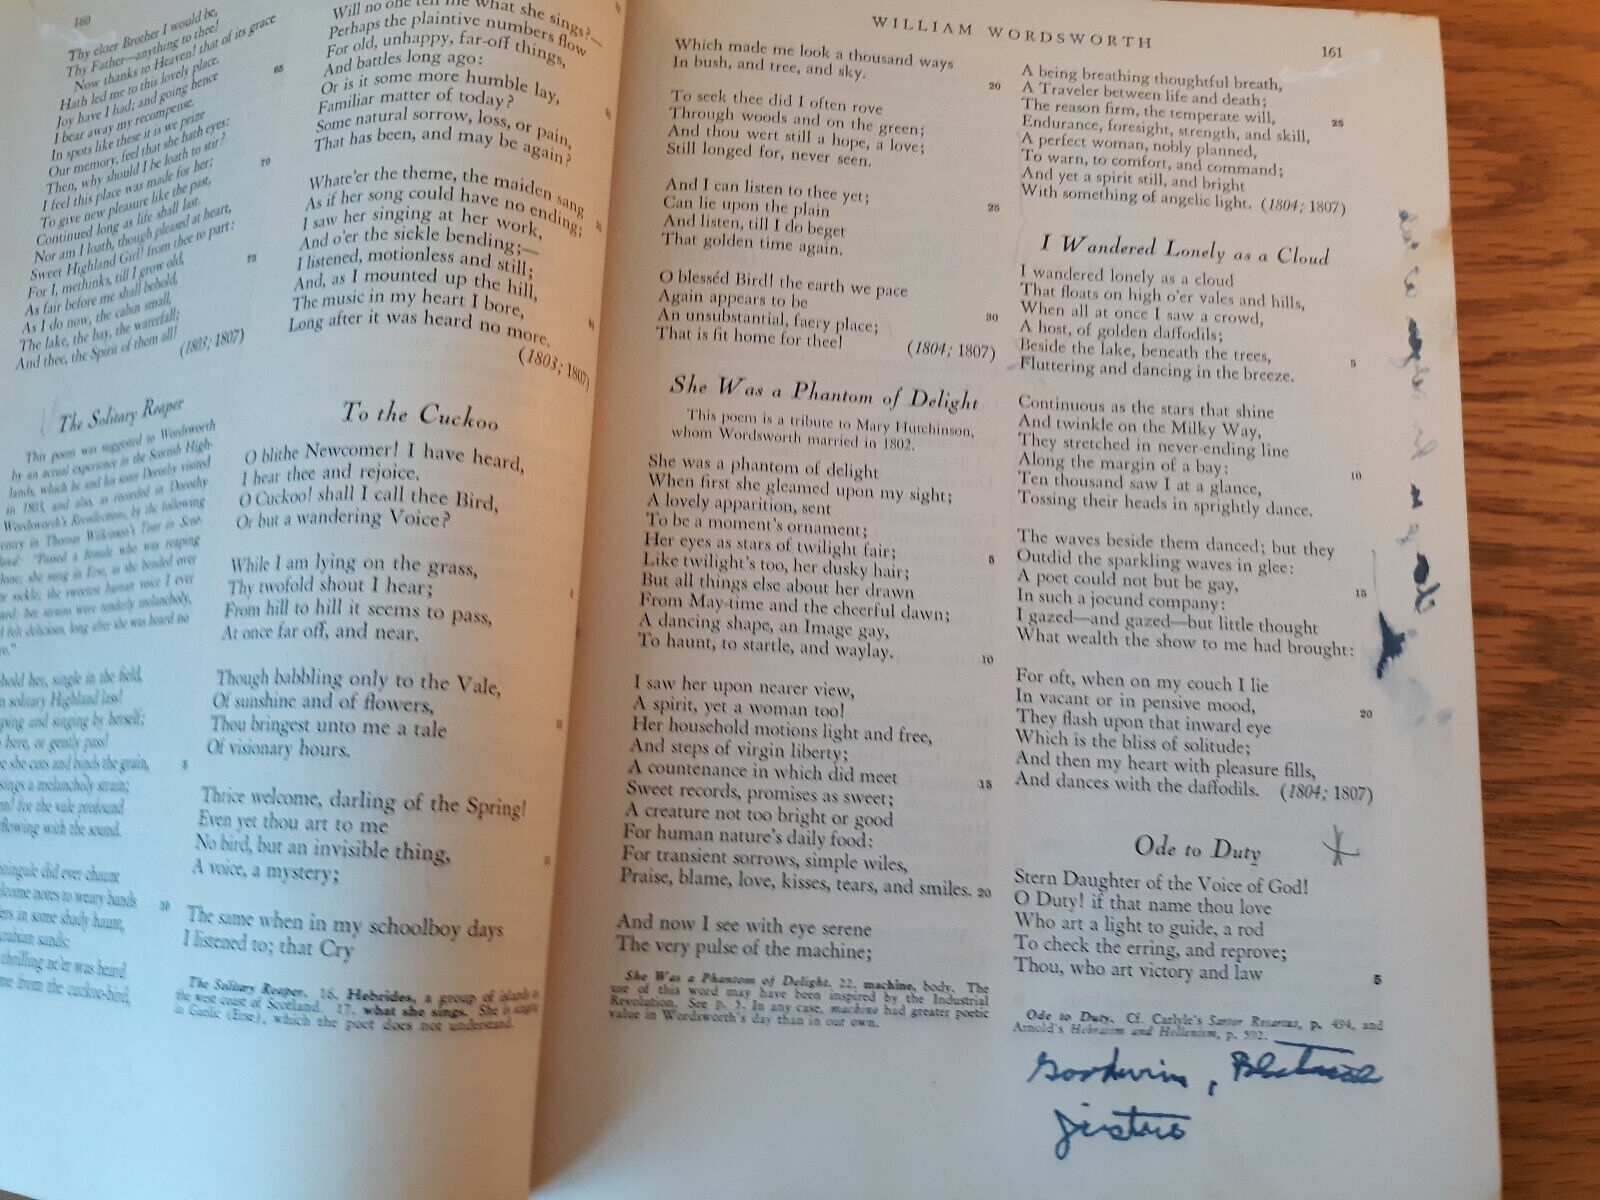 160
Thy elder Brother I would be,
Thy Father—anything to thee!
Now thanks to Heaven! that of its grace
Hath led me to this lovely place. 65
Joy have I had; and going hence
I bear away my recompense.
In spots like these it is we prize
Our memory, feel that she hath eyes:
Then, why should I be loath to stir? 70
I feel this place was made for her;
To give new pleasure like the past,
Continued long as life shall last.
Nor am I loath, though pleased at heart,
Sweet Highland Girl! from thee to part: 75
For I, methinks, till I grow old,
As fair before me shall behold,
As I do now, the cabin small,
The lake, the bay, the waterfall;
And thee, the Spirit of them all!
(1803; 1807)
The Solitary Reaper
This poem was suggested to Wordsworth
by an actual experience in the Scottish High-
lands, which he and his sister Dorothy visited
in 1803, and also, as recorded in Dorothy
Wordsworth's Recollections, by the following
entry in Thomas Wilkinson's Tour in Scot-
land: "Passed a female who was reaping
alone; she sung in Erse, as she bended over
her sickle; the sweetest human voice I ever
heard: her strains were tenderly melancholy,
and felt delicious, long after she was heard no
hold her, single in the field,
solitary Highland lass!
ping and singing by herself;
here, or gently pass!
she cuts and binds the grain, 5
sings a melancholy strain;
for the vale profound
flowing with the sound.
ngale did ever chaunt
lcome notes to weary bands 10
ers in some shady haunt,
rabian sands:
thrilling ne'er was heard
me from the cuckoo-bird,
Will no one tell me what she sings?—
Perhaps the plaintive numbers flow
For old, unhappy, far-off things,
And battles long ago:
Or is it some more humble lay,
Familiar matter of today?
Some natural sorrow, loss, or pain,
That has been, and may be again?
Whate'er the theme, the maiden sang
As if her song could have no ending;
I saw her singing at her work,
And o'er the sickle bending;—
I listened, motionless and still;
And, as I mounted up the hill,
The music in my heart I bore,
Long after it was heard no more.
(1803; 1807)
To the Cuckoo
O blithe Newcomer! I have heard,
I hear thee and rejoice.
O Cuckoo! shall I call thee Bird,
Or but a wandering Voice?
While I am lying on the grass,
Thy twofold shout I hear;
From hill to hill it seems to pass,
At once far off, and near.
Though babbling only to the Vale,
Of sunshine and of flowers,
Thou bringest unto me a tale
Of visionary hours.
Thrice welcome, darling of the Spring!
Even yet thou art to me
No bird, but an invisible thing,
A voice, a mystery;
The same when in my schoolboy days
I listened to; that Cry
The Solitary Reaper. 16. Hebrides, a group of islands in
the west coast of Scotland. 17. what she sings. She is singing
in Gaelic (Erse), which the poet does not understand.
WILLIAM WORDSWORTH
161
Which made me look a thousand ways
In bush, and tree, and sky. 20
To seek thee did I often rove
Through woods and on the green;
And thou wert still a hope, a love;
Still longed for, never seen.
And I can listen to thee yet;
Can lie upon the plain 25
And listen, till I do beget
That golden time again.
O blesséd Bird! the earth we pace
Again appears to be
An unsubstantial, faery place; 30
That is fit home for thee!
(1804; 1807)
She Was a Phantom of Delight
This poem is a tribute to Mary Hutchinson,
whom Wordsworth married in 1802.
She was a phantom of delight
When first she gleamed upon my sight;
A lovely apparition, sent
To be a moment's ornament;
Her eyes as stars of twilight fair; 5
Like twilight's too, her dusky hair;
But all things else about her drawn
From May-time and the cheerful dawn;
A dancing shape, an Image gay,
To haunt, to startle, and waylay. 10
I saw her upon nearer view,
A spirit, yet a woman too!
Her household motions light and free,
And steps of virgin liberty;
A countenance in which did meet 15
Sweet records, promises as sweet;
A creature not too bright or good
For human nature's daily food:
For transient sorrows, simple wiles,
Praise, blame, love, kisses, tears, and smiles. 20
And now I see with eye serene
The very pulse of the machine;
She Was a Phantom of Delight. 22. machine, body. The
use of this word may have been inspired by the Industrial
Revolution. See p. 5. In any case, machine had greater poetic
value in Wordsworth's day than in our own.
A being breathing thoughtful breath,
A Traveler between life and death;
The reason firm, the temperate will, 25
Endurance, foresight, strength, and skill,
A perfect woman, nobly planned,
To warn, to comfort, and command;
And yet a spirit still, and bright
With something of angelic light. (1804; 1807)
I Wandered Lonely as a Cloud
I wandered lonely as a cloud
That floats on high o'er vales and hills,
When all at once I saw a crowd,
A host, of golden daffodils;
Beside the lake, beneath the trees, 5
Fluttering and dancing in the breeze.
Continuous as the stars that shine
And twinkle on the Milky Way,
They stretched in never-ending line
Along the margin of a bay: 10
Ten thousand saw I at a glance,
Tossing their heads in sprightly dance.
The waves beside them danced; but they
Outdid the sparkling waves in glee:
A poet could not but be gay, 15
In such a jocund company:
I gazed—and gazed—but little thought
What wealth the show to me had brought:
For oft, when on my couch I lie
In vacant or in pensive mood, 20
They flash upon that inward eye
Which is the bliss of solitude;
And then my heart with pleasure fills,
And dances with the daffodils. (1804; 1807)
Ode to Duty
Stern Daughter of the Voice of God!
O Duty! if that name thou love
Who art a light to guide, a rod
To check the erring, and reprove;
Thou, who art victory and law 5
Ode to Duty. Cf. Carlyle's Sartor Resartus, p. 494, and
Arnold's Hebraism and Hellenism, p. 592.